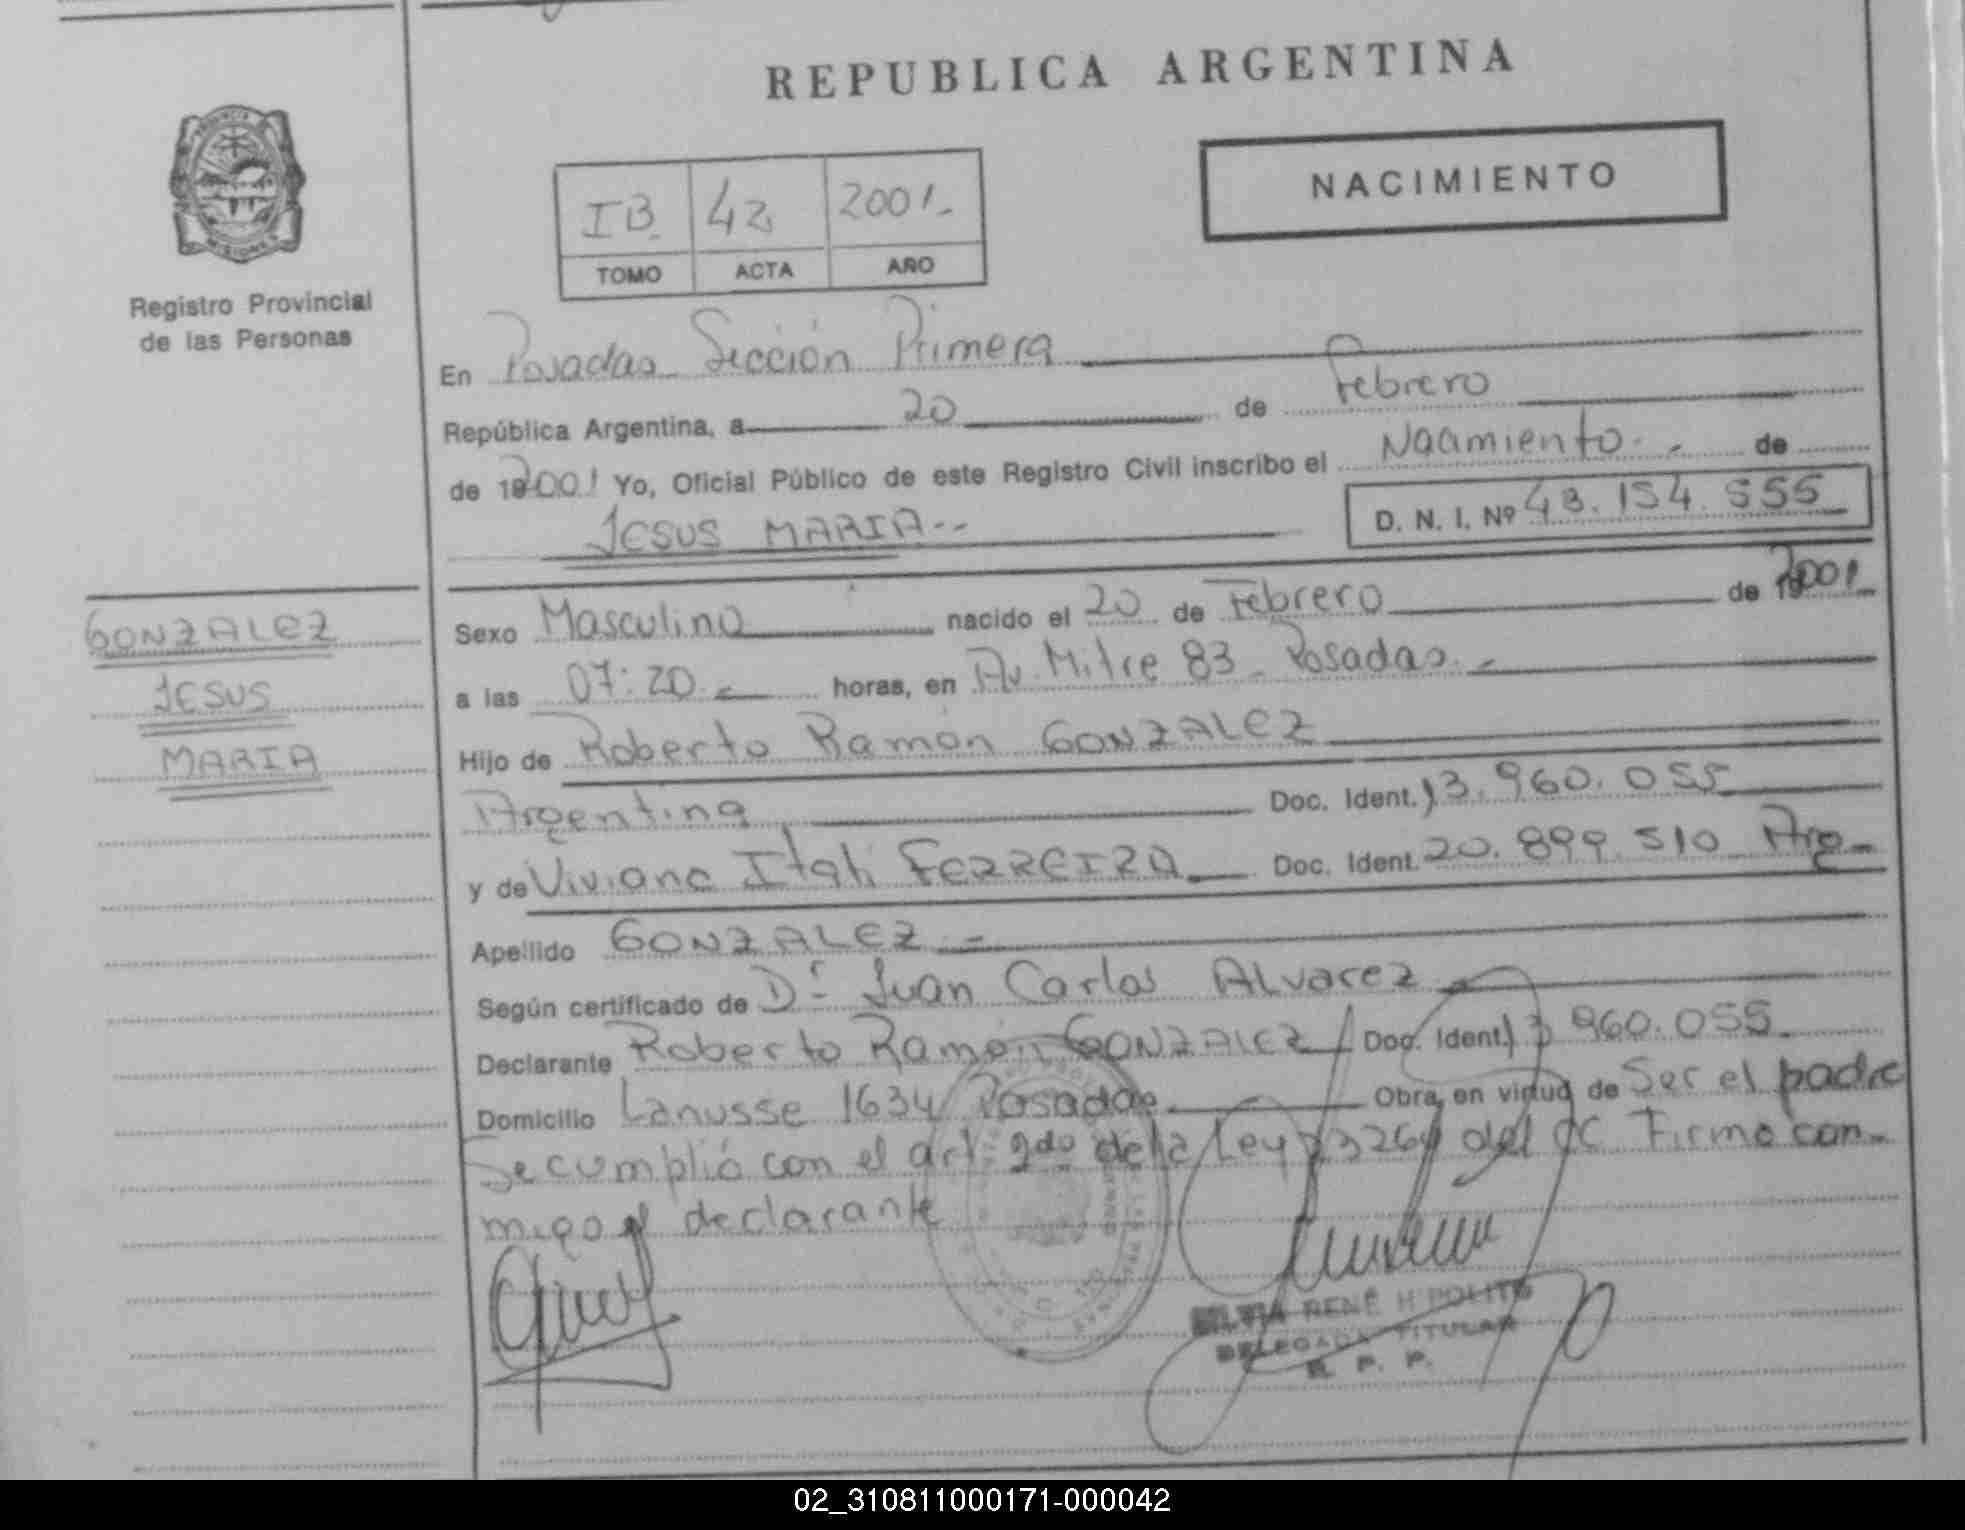 REPUBLICA ARGENTINA
NACIMIENTO
IB 42 2001.-
TOMO ACTA AÑO
PROVINCIA
MISIONES
Registro Provincial
de las Personas
En Posadas Sección Primera
República Argentina, a 20 de Febrero
de 192001 Yo, Oficial Público de este Registro Civil inscribo el Nacimiento.- de
JESUS MARIA.--
D. N. I. Nº 43.154.555
GONZALEZ
JESUS
MARIA
Sexo Masculino nacido el 20 de Febrero de 192001.
a las 07:20.- horas, en Av. Mitre 83 - Posadas.-
Hijo de Roberto Ramón GONZALEZ
Argentina Doc. Ident. 13.960.055
y de Viviana Itatí FERREIRA Doc. Ident. 20.899.510 Arg-
Apellido GONZALEZ.-
Según certificado de Dr. Juan Carlos Alvarez
Declarante Roberto Ramón GONZALEZ Doc. Ident. 13 960.055.
Domicilio Lanusse 1634 Posadas. Obra, en virtud de Ser el padre
Se cumplió con el art. 2do de la Ley 23264 del CC Firma con-
migo el declarante
SILVIA RENÉ HIPOLITO
DELEGADA TITULAR
R. P. P.
02_310811000171-000042